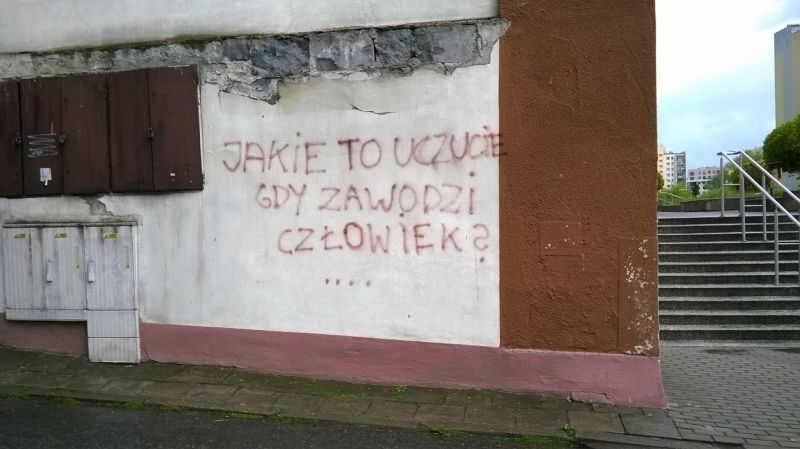 JAKIE TO UCZUCIE
GDY ZAWODZI
CZŁOWIEK?
....